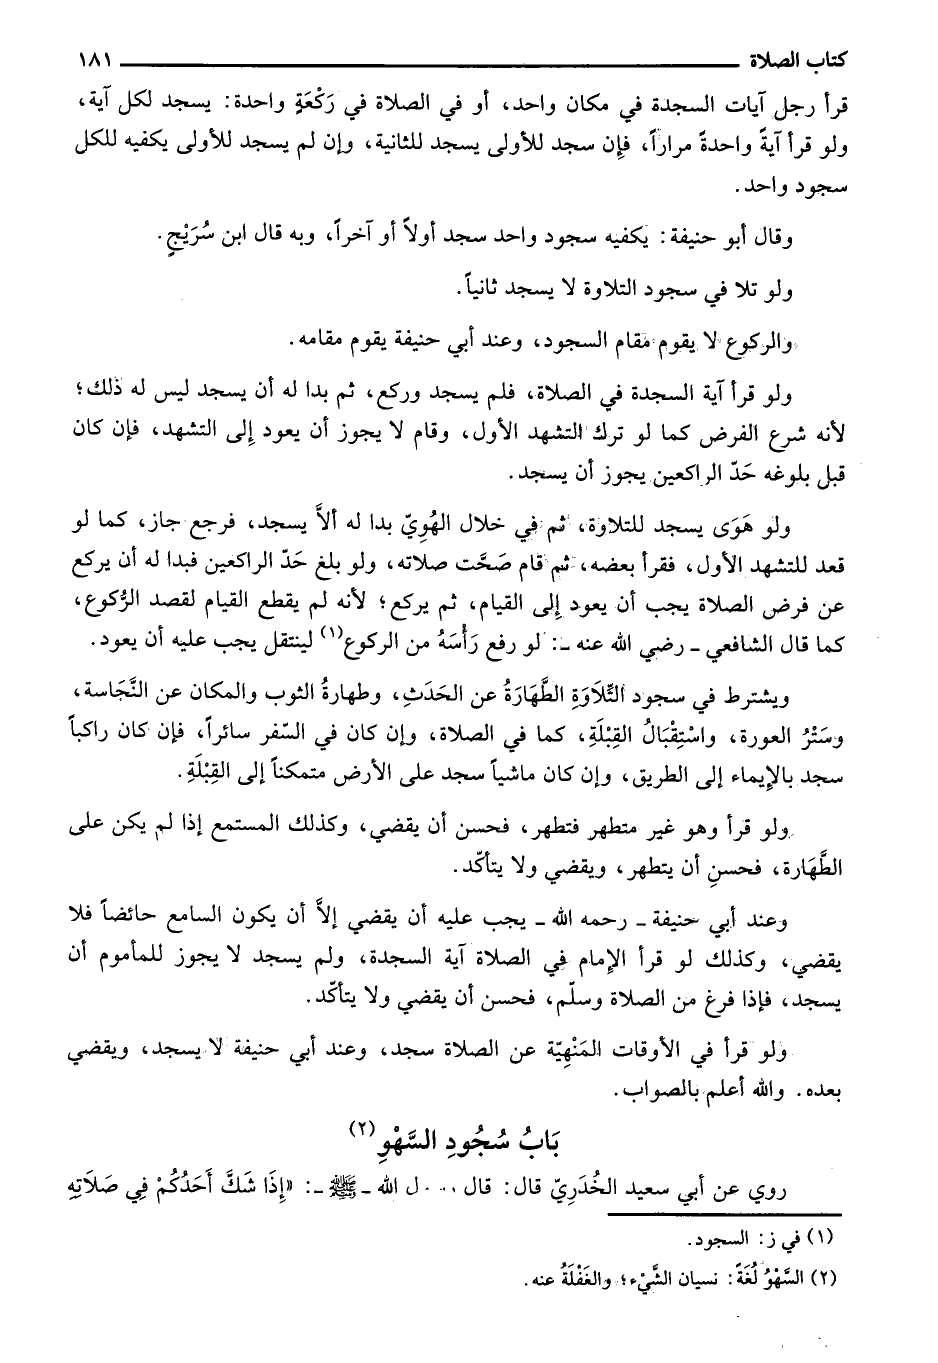 كتاب الصلاة ١٨١
قرأ رجل آيات السجدة في مكان واحد، أو في الصلاة في رَكْعَةٍ واحدة: يسجد لكل آية،
ولو قرأ آيةً واحدةً مراراً، فإن سجد للأولى يسجد للثانية، وإن لم يسجد للأولى يكفيه للكل
سجود واحد.
وقال أبو حنيفة: يكفيه سجود واحد سجد أولاً أو آخراً، وبه قال ابن سُرَيْجٍ.
ولو تلا في سجود التلاوة لا يسجد ثانياً.
والركوع لا يقوم مقام السجود، وعند أبي حنيفة يقوم مقامه.
ولو قرأ آية السجدة في الصلاة، فلم يسجد وركع، ثم بدا له أن يسجد ليس له ذلك؛
لأنه شرع الفرض كما لو ترك التشهد الأول، وقام لا يجوز أن يعود إلى التشهد، فإن كان
قبل بلوغه حَدّ الراكعين يجوز أن يسجد.
ولو هَوَى يسجد للتلاوة، ثم في خلال الهُوِيّ بدا له ألاَّ يسجد، فرجع جاز، كما لو
قعد للتشهد الأول، فقرأ بعضه، ثم قام صَحَّت صلاته، ولو بلغ حَدّ الراكعين فبدا له أن يركع
عن فرض الصلاة يجب أن يعود إلى القيام، ثم يركع؛ لأنه لم يقطع القيام لقصد الرُّكوع،
كما قال الشافعي ـ رضي الله عنه ـ: لو رفع رَأْسَهُ من الركوع(١) لينتقل يجب عليه أن يعود.
ويشترط في سجود التِّلَاوَةِ الطَّهَارَةُ عن الحَدَثِ، وطهارةُ الثوب والمكان عن النَّجَاسة،
وسَتْرُ العورة، واسْتِقْبَالُ القِبْلَةِ، كما في الصلاة، وإن كان في السّفر سائراً، فإن كان راكباً
سجد بالإيماء إلى الطريق، وإن كان ماشياً سجد على الأرض متمكناً إلى القِبْلَةِ.
ولو قرأ وهو غير متطهر فتطهر، فحسن أن يقضي، وكذلك المستمع إذا لم يكن على
الطَّهَارة، فحسن أن يتطهر، ويقضي ولا يتأكّد.
وعند أبي حنيفة ـ رحمه الله ـ يجب عليه أن يقضي إلاَّ أن يكون السامع حائضاً فلا
يقضي، وكذلك لو قرأ الإمام في الصلاة آية السجدة، ولم يسجد لا يجوز للمأموم أن
يسجد، فإذا فرغ من الصلاة وسلّم، فحسن أن يقضي ولا يتأكّد.
ولو قرأ في الأوقات المَنْهِيّة عن الصلاة سجد، وعند أبي حنيفة لا يسجد، ويقضي
بعده. والله أعلم بالصواب.
بَابُ سُجُودِ السَّهْوِ(٢)
روي عن أبي سعيد الخُدَرِيّ قال: قال الله ـ ﷺ ـ: «إِذَا شَكَّ أَحَدُكُمْ فِي صَلَاتِهِ
(١) في ز: السجود.
(٢) السَّهْوُ لُغَةً: نسيان الشَّيْء؛ والغَفْلَةُ عنه.